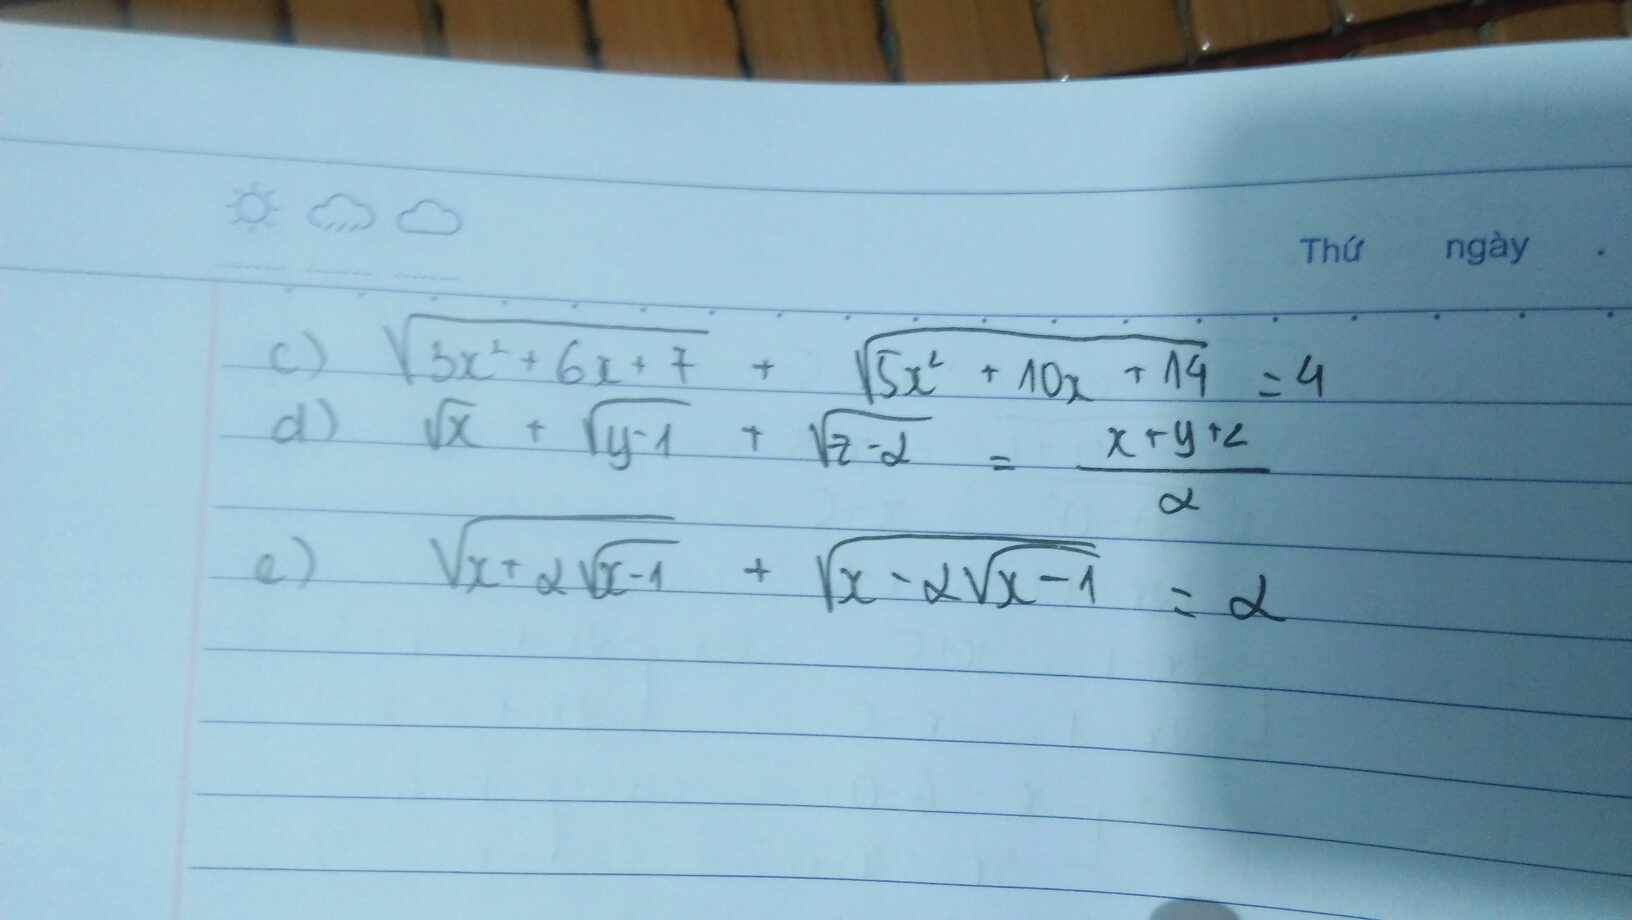 Thứ ngày .
c) √(3x² + 6x + 7) + √(5x² + 10x + 14) = 4
d) √x + √(y-1) + √(z-2) = (x+y+z)/2
e) √(x+2√(x-1)) + √(x-2√(x-1)) = 2